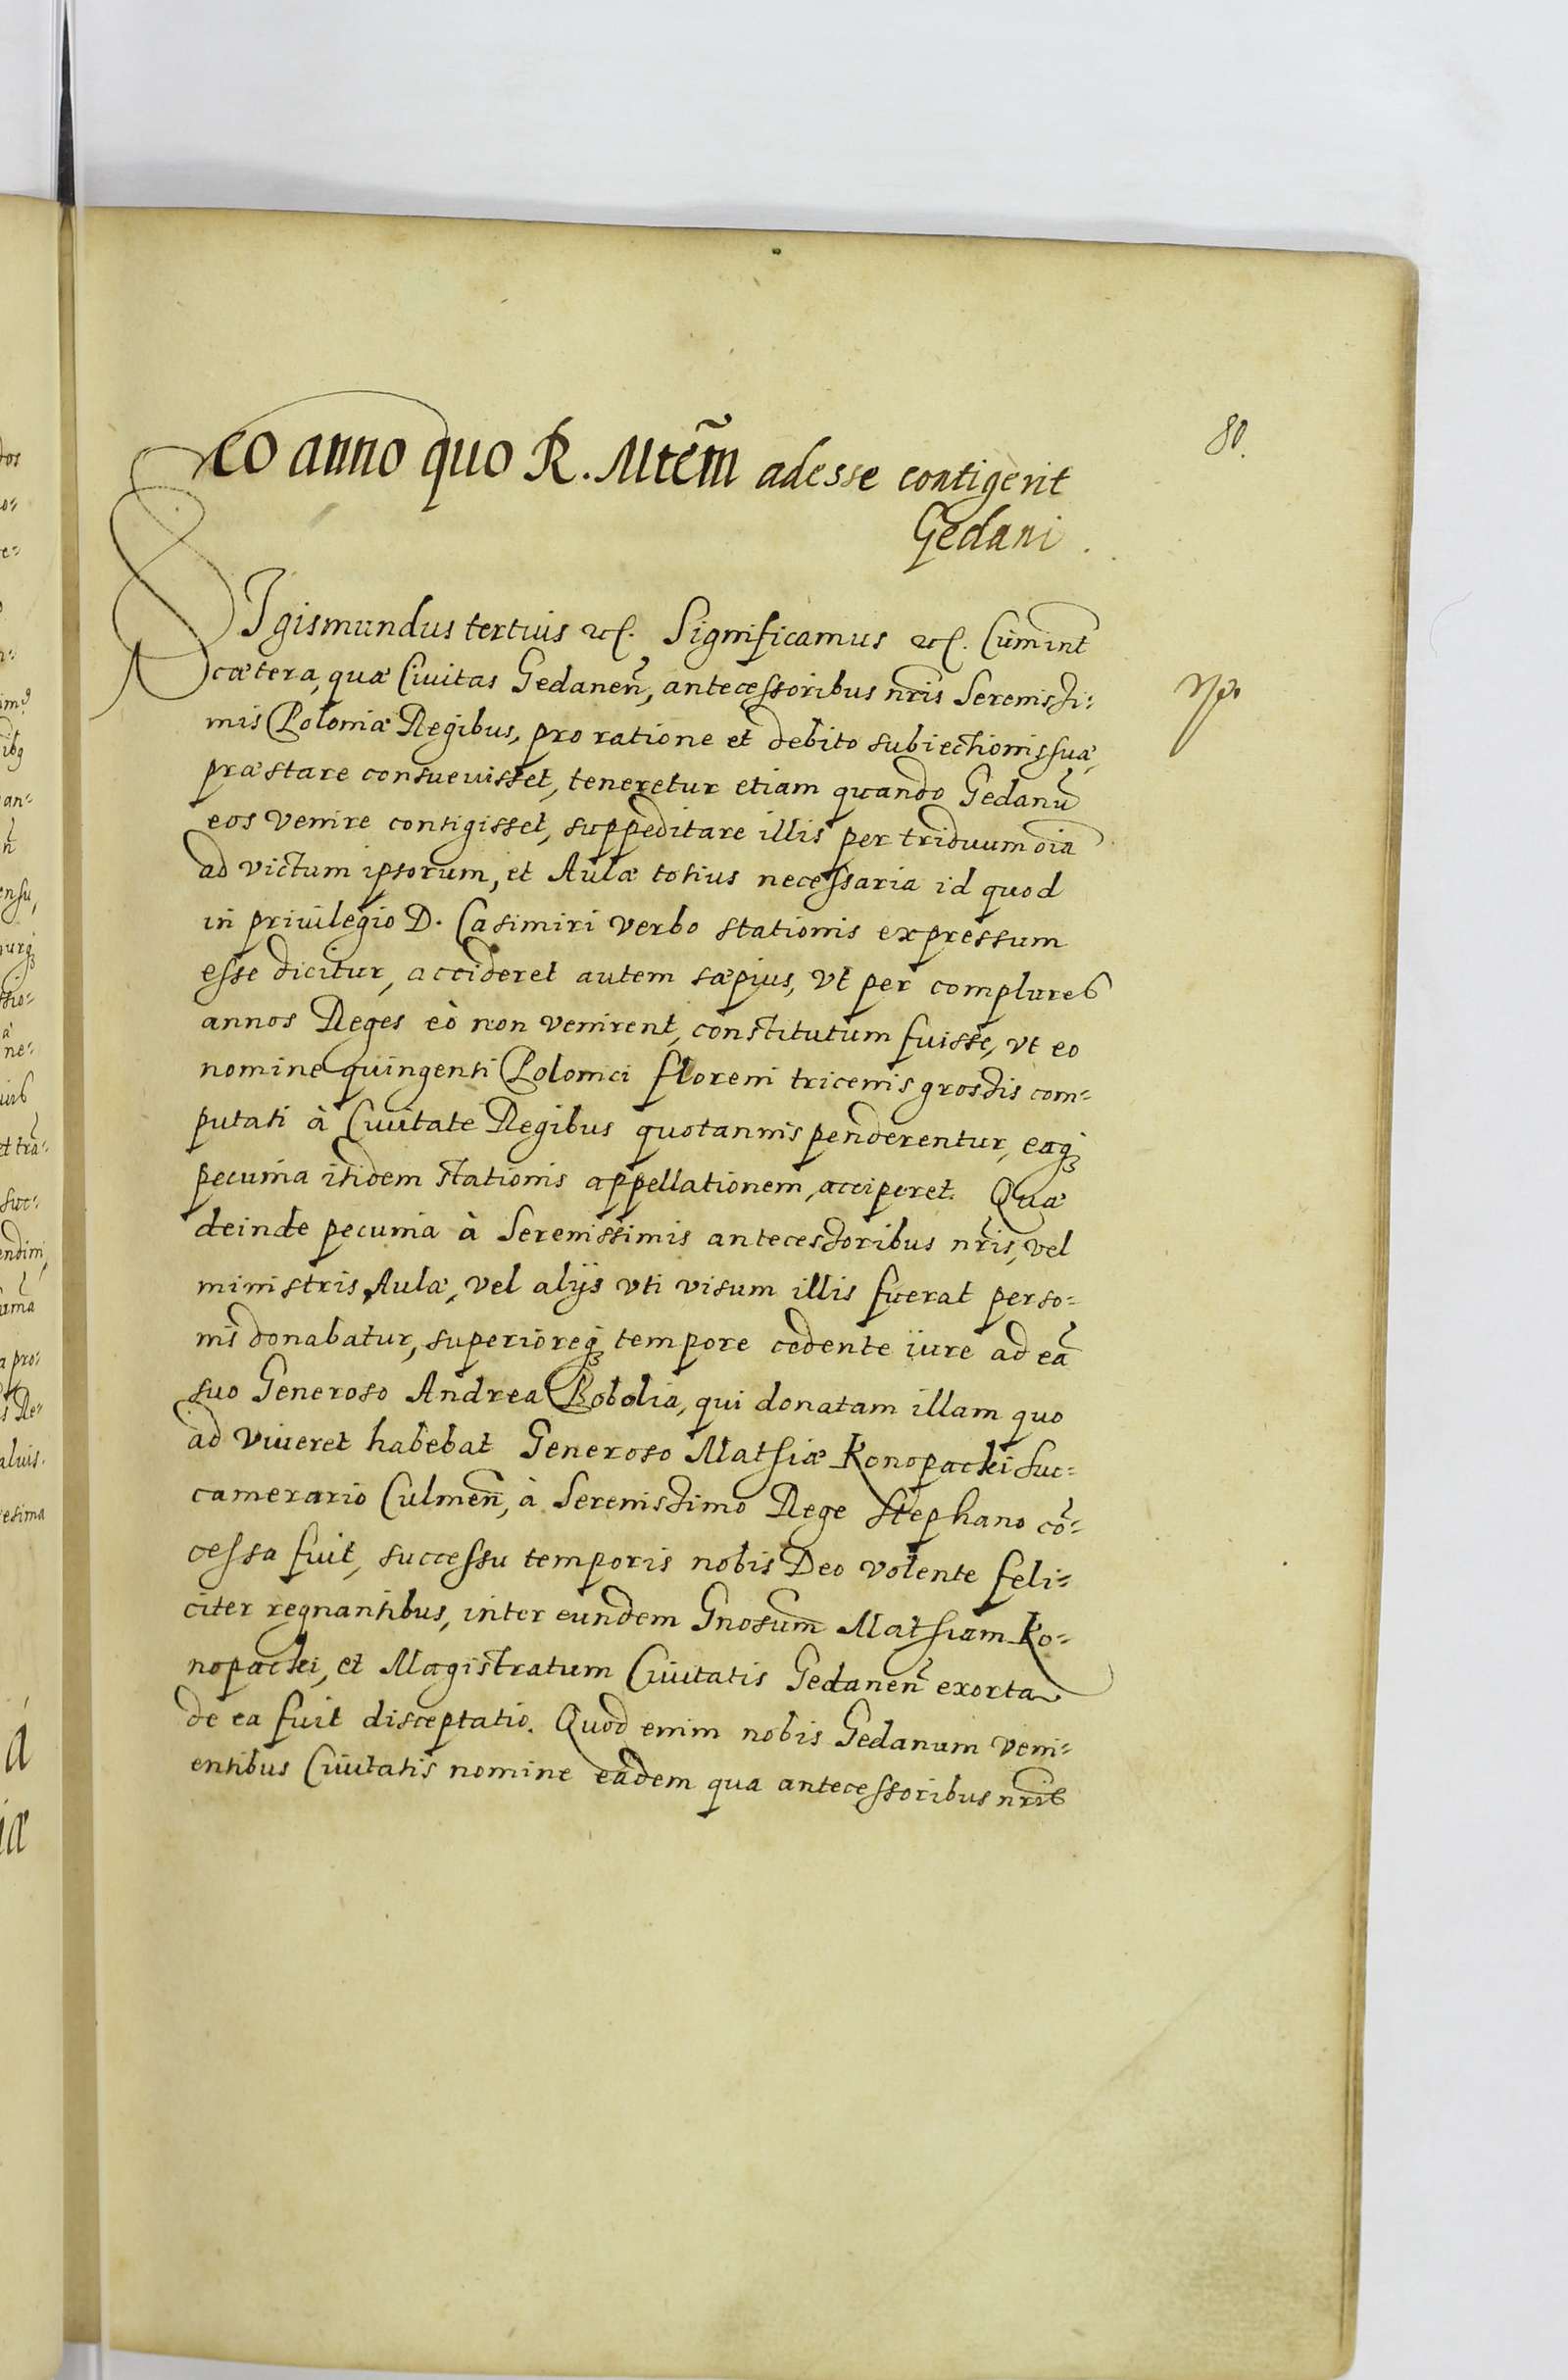 80.
eo anno quo R. Mtem̃ adesse contigerit
Gedani.
SIgismundus tertius etc. Significamus etc. Cùm int̃
cætera, quæ Ciuitas Gedaneñ, antecessoribus nr̃is Serenissi=
mis Poloniæ Regibus, pro ratione et debito subiectionis suæ,
præstare consueuisset, teneretur etiam quando Gedanũ
eos venire contigisset, suppeditare illis per triduum oĩa
ad victum ipsorum, et Aulæ totius necessaria id quod
in priuilegio D. Casimiri verbo stationis expressum
esse dicitur, accideret autem sæpius, vt per complures
annos Reges eò non venirent, constitutum fuisse, vt eo
nomine quingenti Polonici floreni tricenis grossis com=
putati à Ciuitate Regibus quotannis penderentur, eaq́
pecunia itidem stationis appellationem, acciperet. Quæ
deinde pecunia à Serenissimis antecessoribus nr̃is, vel
ministris Aulæ, vel alijs vti visum illis fuerat perso=
nis donabatur, superioreq́ tempore cedente iure ad eã
suo Generoso Andrea Bobolia, qui donatam illam quo
ad viueret habebat Generoso Mathiæ Konopacki Suc=
camerario Culmeñ, à Serenissimo Rege Stephano cõ=
cessa fuit, successu temporis nobis Deo volente feli=
citer regnantibus, inter eundem Gnosum̃ Mathiam Ko=
nopacki, et Magistratum Ciuitatis Gedaneñ exorta
de ea fuit disceptatio. Quod enim nobis Gedanum veni=
entibus Ciuitatis nomine eadem qua antecessoribus nr̃is